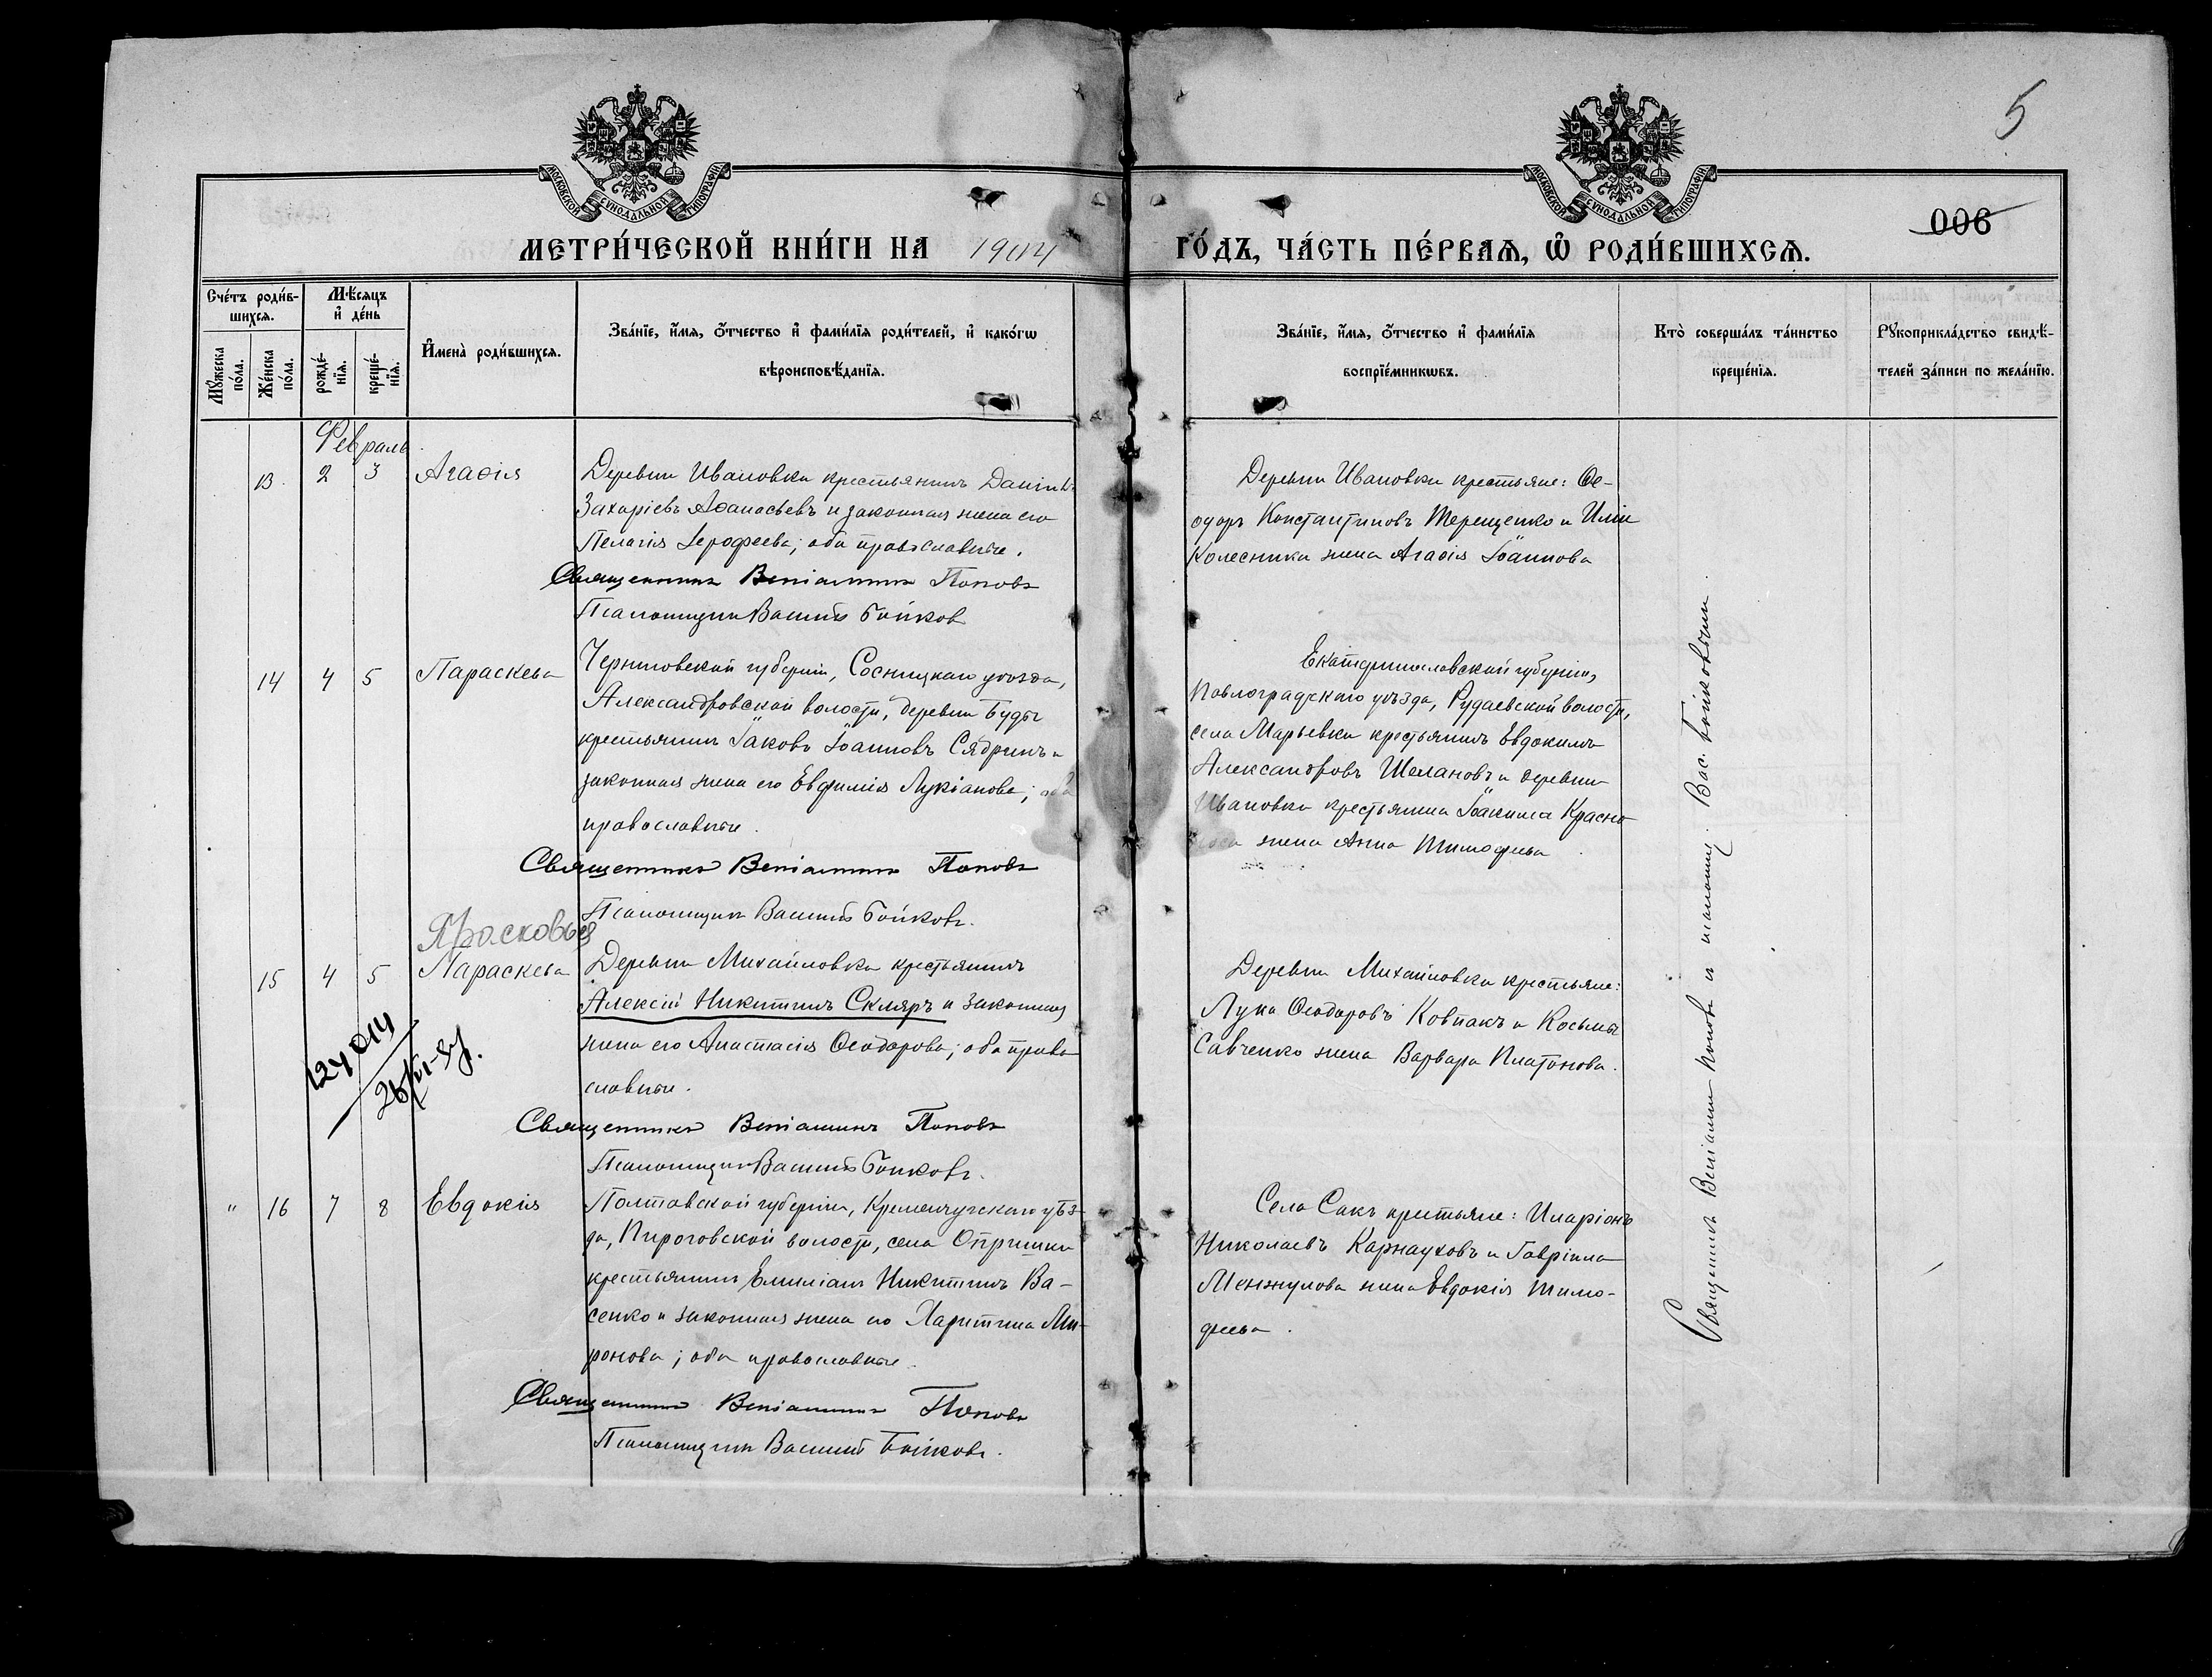 5
МОСКОВСКОЙ СѴНОДАЛЬНОЙ ТИПОГРАФІИ
МОСКОВСКОЙ СѴНОДАЛЬНОЙ ТИПОГРАФІИ
006
МЕТРИ́ЧЕСКОЙ КНИ́ГИ НА 1904
ГО́ДЪ, ЧА́СТЬ ПЕ́РВАѦ, Ѡ҆ РОДИ́ВШИХСѦ.
Сче́тъ роди́в-
шихсѧ.
Мꙋ́жеска по́ла.
Же́нска по́ла.
Мѣ́сѧцъ
и҆ де́нь
рожде́-
нїѧ.
креще́-
нїѧ.
И҆мена̀ роди́вшихсѧ.
Зва́нїе, и҆́мѧ, ѻ҆́тчество и҆ фами́лїѧ роди́телей, и҆ како́гѡ
вѣроисповѣ́данїѧ.
Зва́нїе, и҆́мѧ, ѻ҆́тчество и҆ фами́лїѧ
воспрїе́мникѡвъ.
Кто̀ соверша́лъ та́инство
креще́нїѧ.
Рꙋкоприкла́дство свидѣ́-
телей за́писи по жела́нїю.
Февраль.
13. 2 3 Агаѳія
Деревни Ивановки крестьянинъ Даніилъ
Захаріевъ Аѳанасьевъ и законная жена его
Пелагія Іерофеева; оба православные.
Священникъ Веніаминъ Поповъ
Псаломщикъ Василій Бойков
Деревни Ивановки крестьяне: Ѳе-
одоръ Константиновъ Терещенко и Иліи
Колесника жена Агаѳія Іоаннова
14 4 5 Параскева
Черниговской губерніи, Сосницкаго уѣзда,
Александровской волости, деревни Буды
крестьянинъ Іаковъ Іоанновъ Сядринъ и
законная жена его Евфимія Лукіанова; оба
православные.
Священникъ Веніаминъ Поповъ
Псаломщикъ Василій Бойковъ.
Екатеринославской губерніи,
Павлоградскаго уѣзда, Рудаевской волости,
села Марьевки крестьянинъ Евдокимъ
Александровъ Шелановъ и деревни
Ивановки крестьянина Іоакима Красно
жена Анна Тимофеева
Прасковья
15 4 5 Параскева
Деревни Михайловки крестьянинъ
Алексій Никитинъ Скляръ и законная
жена его Анастасія Ѳеодорова; оба право
славные.
Священникъ Веніаминъ Поповъ
Псаломщикъ Василій Бойковъ.
Деревни Михайловки крестьяне:
Лука Ѳеодоровъ Ковпакъ и Косьмы
Савченко жена Варвара Платонова.
" 16 7 8 Евдокія
Полтавской губерніи, Кременчугскаго уѣз-
да, Пироговской волости, села Опришки
крестьянинъ Емиліанъ Никитинъ Ва-
сенко и законная жена его Харитина Ми-
ронова; оба православные.
Священникъ Веніаминъ Поповъ
Псаломщикъ Василій Бойковъ.
Село Сакъ крестьяне: Иларіонъ
Николаевъ Карнауховъ и Гавріила
Менжулова жена Евдокія Тимо-
феева.
Священникъ Веніаминъ Поповъ и псаломщ. Вас. Бойковымъ.